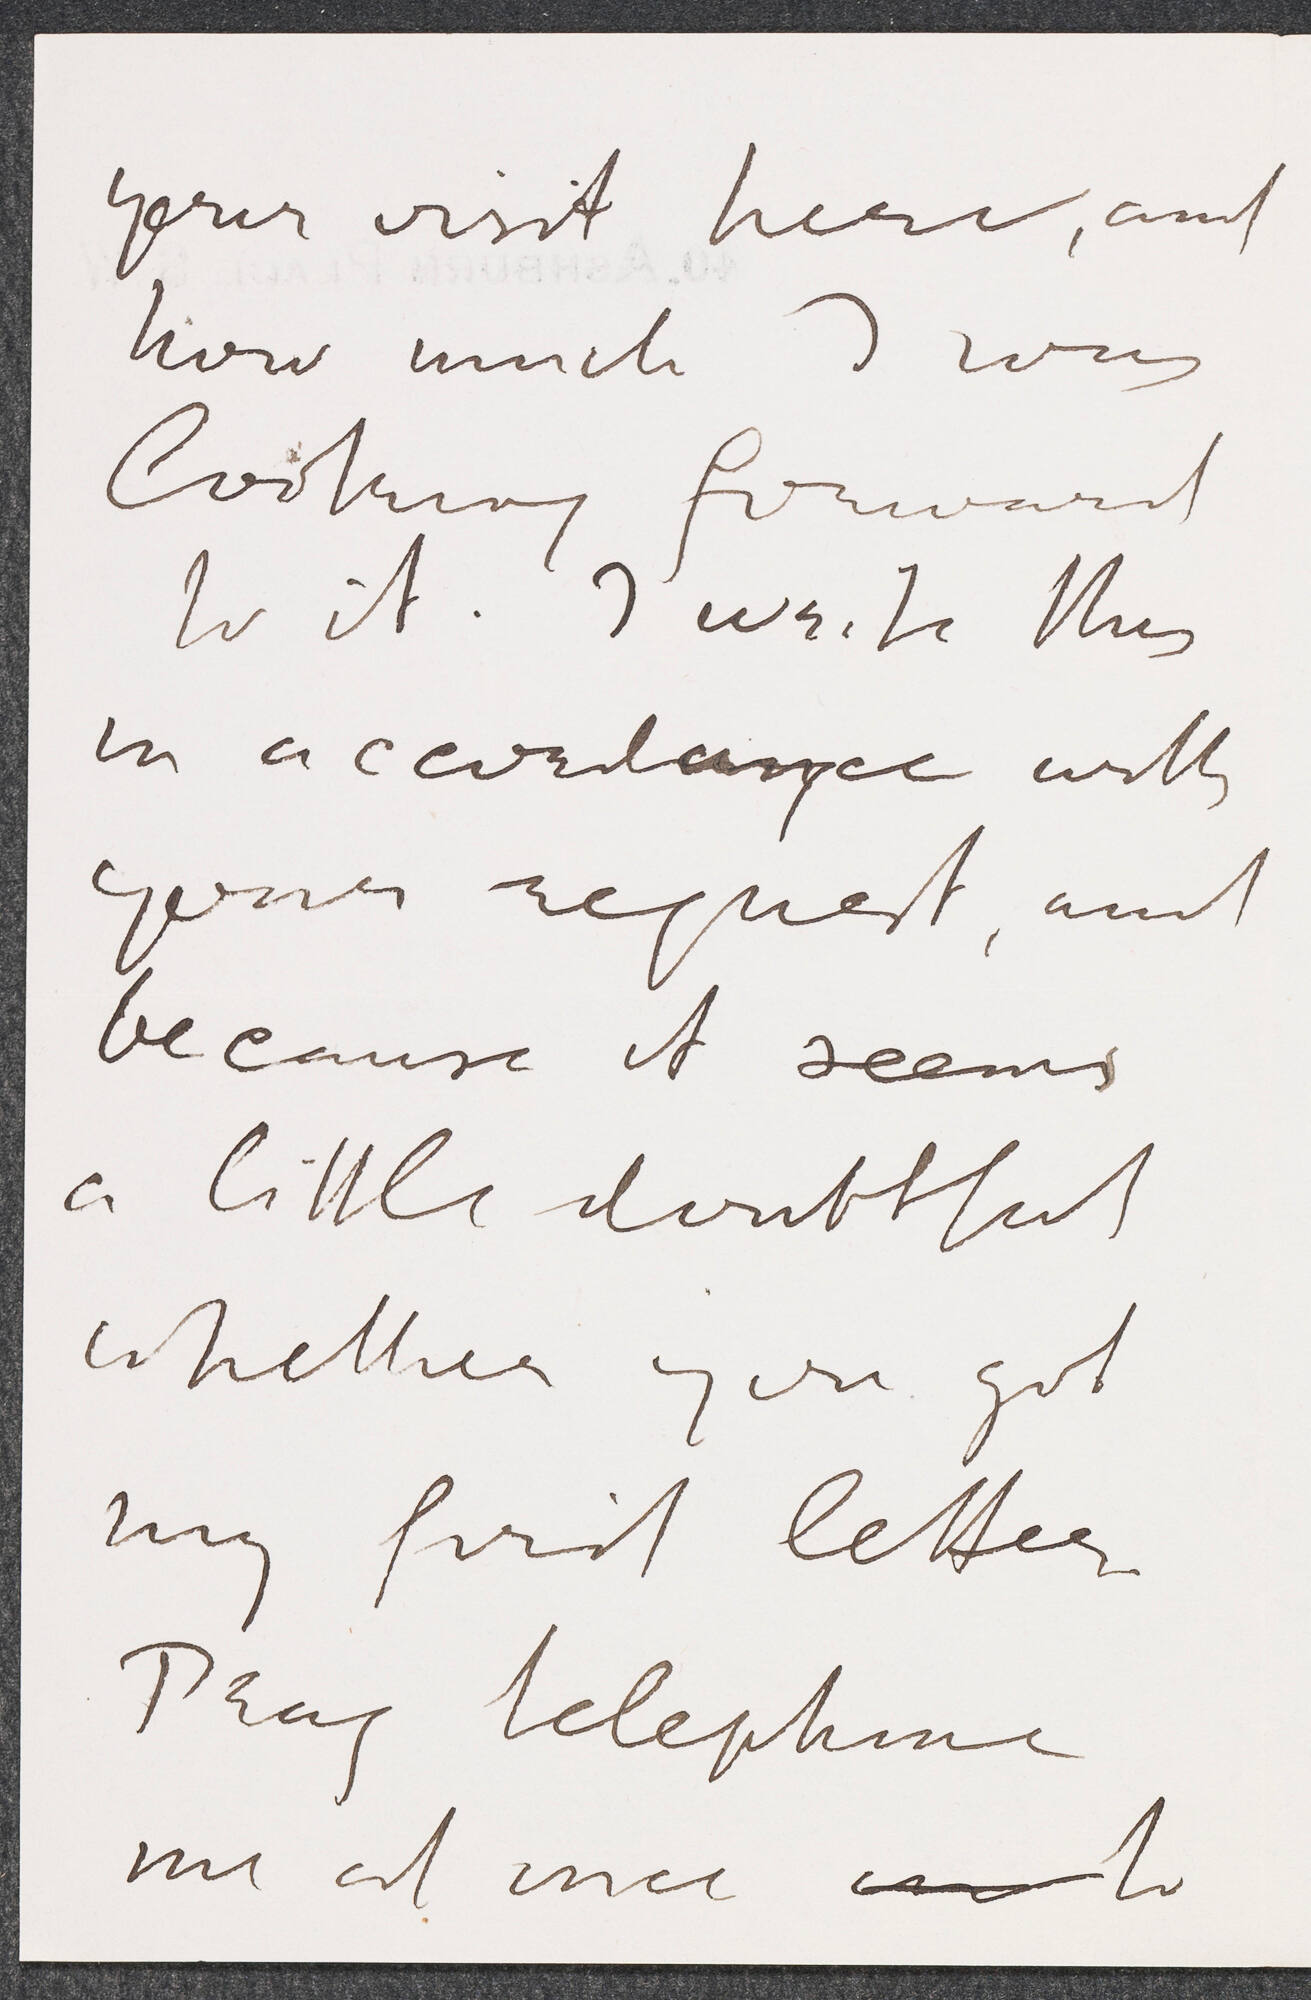 your visit here, and
how much I was
looking forward
to it. I write this
in accordance with
your request, and
because it seems
a little doubtful
whether you got
my first letter
Pray telephone
me at once to